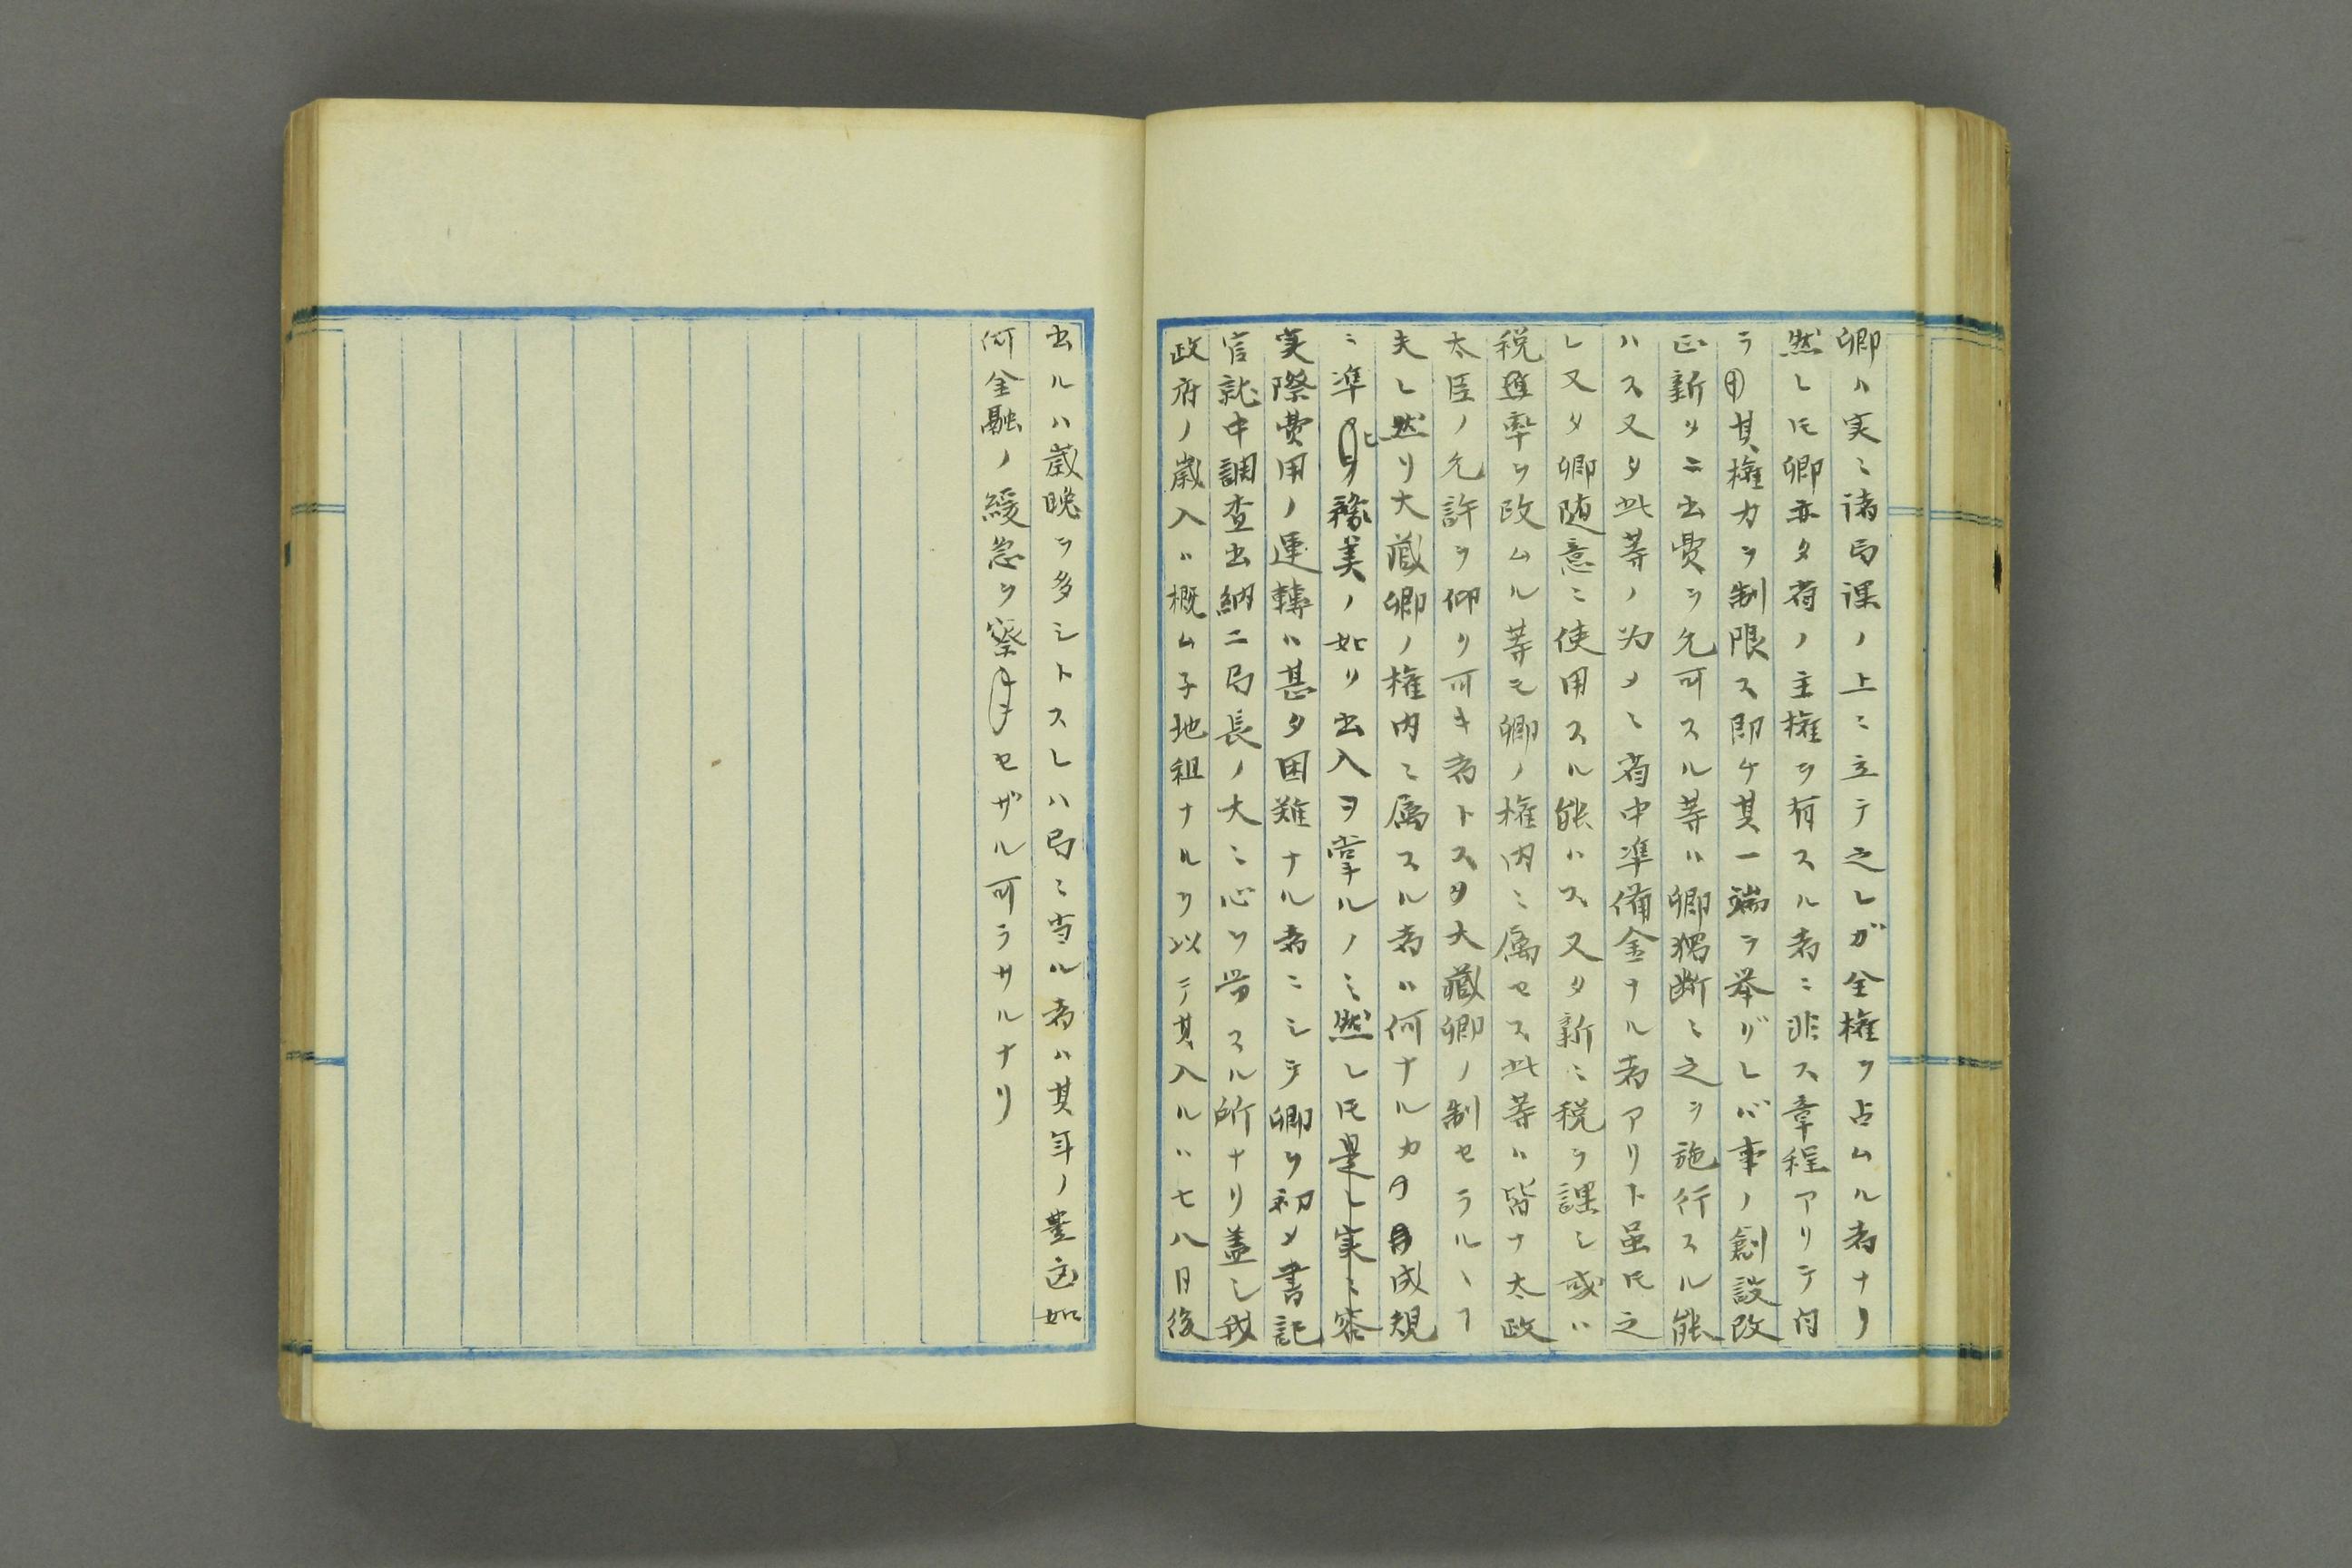 卿ハ実ニ諸局課ノ上ニ立テ之レガ全権ヲ占ムル者ナリ
然レ𪜈卿亦タ省ノ主権ヲ有スル者ニ非ス章程アリテ自
ラ其権力ヲ制限ス即ケ其一端ヲ挙グレバ事ノ創設改
正新ツニ出費ヲ允可スル等ハ卿独断ニ之ヲ施行スル能
ハス又タ此等ノ为メニ省中準備金ナル者アリト虽𪜈之
レ又タ卿随意ニ使用スル能ハス又タ新ニ税ヲ課シ或ハ
税率ヲ改ムル等モ卿ノ権内ニ属セス此等ハ皆ナ太政
大臣ノ允許ヲ仰り可キ者トス大藏卿ノ制セラルヽヿ
夫レ然リ大藏卿ノ権内ニ属スル者ハ何ナルカ曰成規
ニ準ヒ豫美ノ如リ出入ヲ掌ルノミ然レ𪜈是レ実ニ容
実際費用ノ運轉ハ甚タ困難ナル者ニシテ卿ヲ初メ書記
官就中調査出納二局長ノ大ニ心ヲ労スル所ナリ蓋シ我
政府ノ歳入ハ概ム子地租ナルヲ以テ其入ルハ七八月後
出ルハ歳晩ヲ多シトスレハ局ニ当ル者ハ其年ノ豊凶如
何金融ノ緩急ヲ察セザル可ラサルナリ